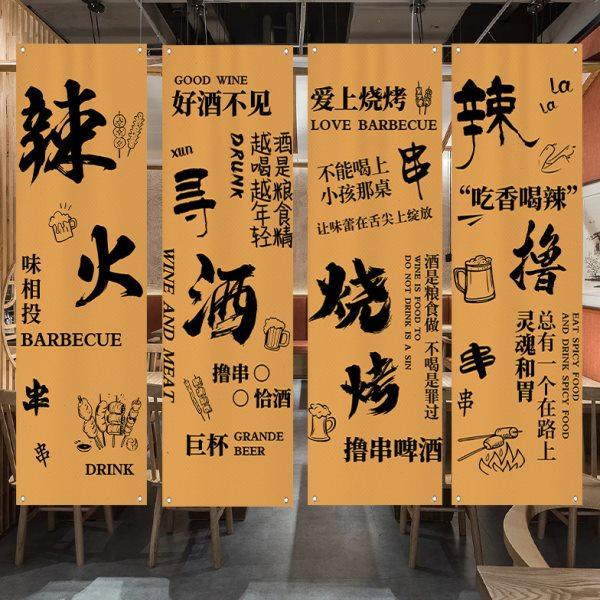 辣
火
味相投
BARBECUE
串
串
DRINK
GOOD WINE
好酒不见
xun
寻
DRUNK
酒是粮食精
越喝越年轻
WINE AND MEAT
酒
撸串〇
〇恰酒
巨杯
GRANDE
BEER
爱上烧烤
LOVE BARBECUE
不能喝上
小孩那桌
串
让味蕾在舌尖上绽放
烧
烤
酒是粮食做 不喝是罪过
WINE IS FOOD TO
DO NOT DRINK IS A SIN
撸串啤酒
辣
la
la
“吃香喝辣”
撸
串
串
总有一个在路上
灵魂和胃
EAT SPICY FOOD
AND DRINK SPICY FOOD